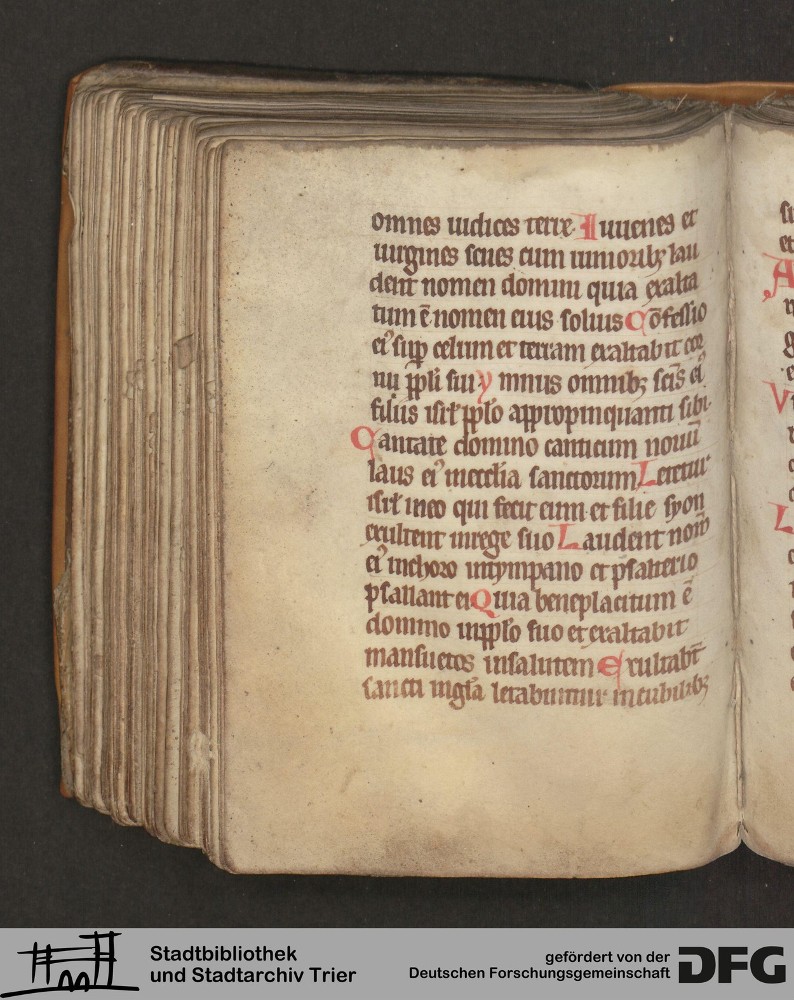 omnes iudices terre. Iuuenes et
uirgines senes cum iunioribꝫ lau
dent nomen domini quia exalta
tum ē nomen eius solius Cōfessio
eiꝰ suꝑ celum et terram exaltabit cor
nu ppli sui ymnus omnibꝫ scīs eiꝰ
filiis isrl pplo appropinquanti sibi.
Cantate domino canticum nouū
laus eiꝰ in ecclia sanctorum Letetur
isrl in eo qui fecit eum et filie syon
exultent in rege suo Laudent nom̄
eiꝰ in choro in tympano et psalterio
psallant ei Quia beneplacitum ē
domino in pplo suo et exaltabit
mansuetos in salutem Exultabt̄
sancti in gla letabuntur in cubilibꝫ
su
et
A
V
L
Stadtbibliothek
und Stadtarchiv Trier
gefördert von der
Deutschen Forschungsgemeinschaft
DFG